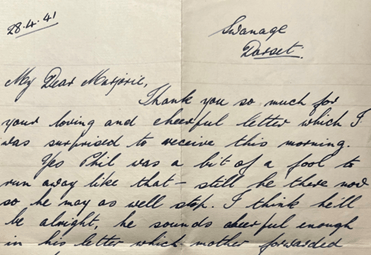 28.4.41
Swanage
Dorset.
My Dear Marjorie,
Thank you so much for
your loving and cheerful letter which I
was surprised to receive this morning.
Yes Phil was a bit of a fool to
run away like that – still he there now
so he may as well stop. I think he'll
be alright, he sounds cheerful enough
in his letter which mother forwarded